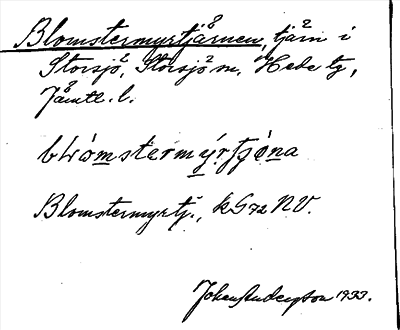 Blomstermyrtjärnen, tjärn i
Storsjö, Storsjö sn. Hede tg,
Jämtl. l.
blómstermýrtjóna
Blomstermyrtj., kG 72 NV.
Johan Anderson 1933.